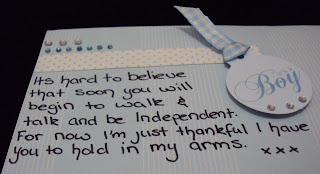 Boy
Its hard to believe
that soon you will
begin to walk &
talk and be Independent.
For now I'm just thankful I have
you to hold in my arms. xxx